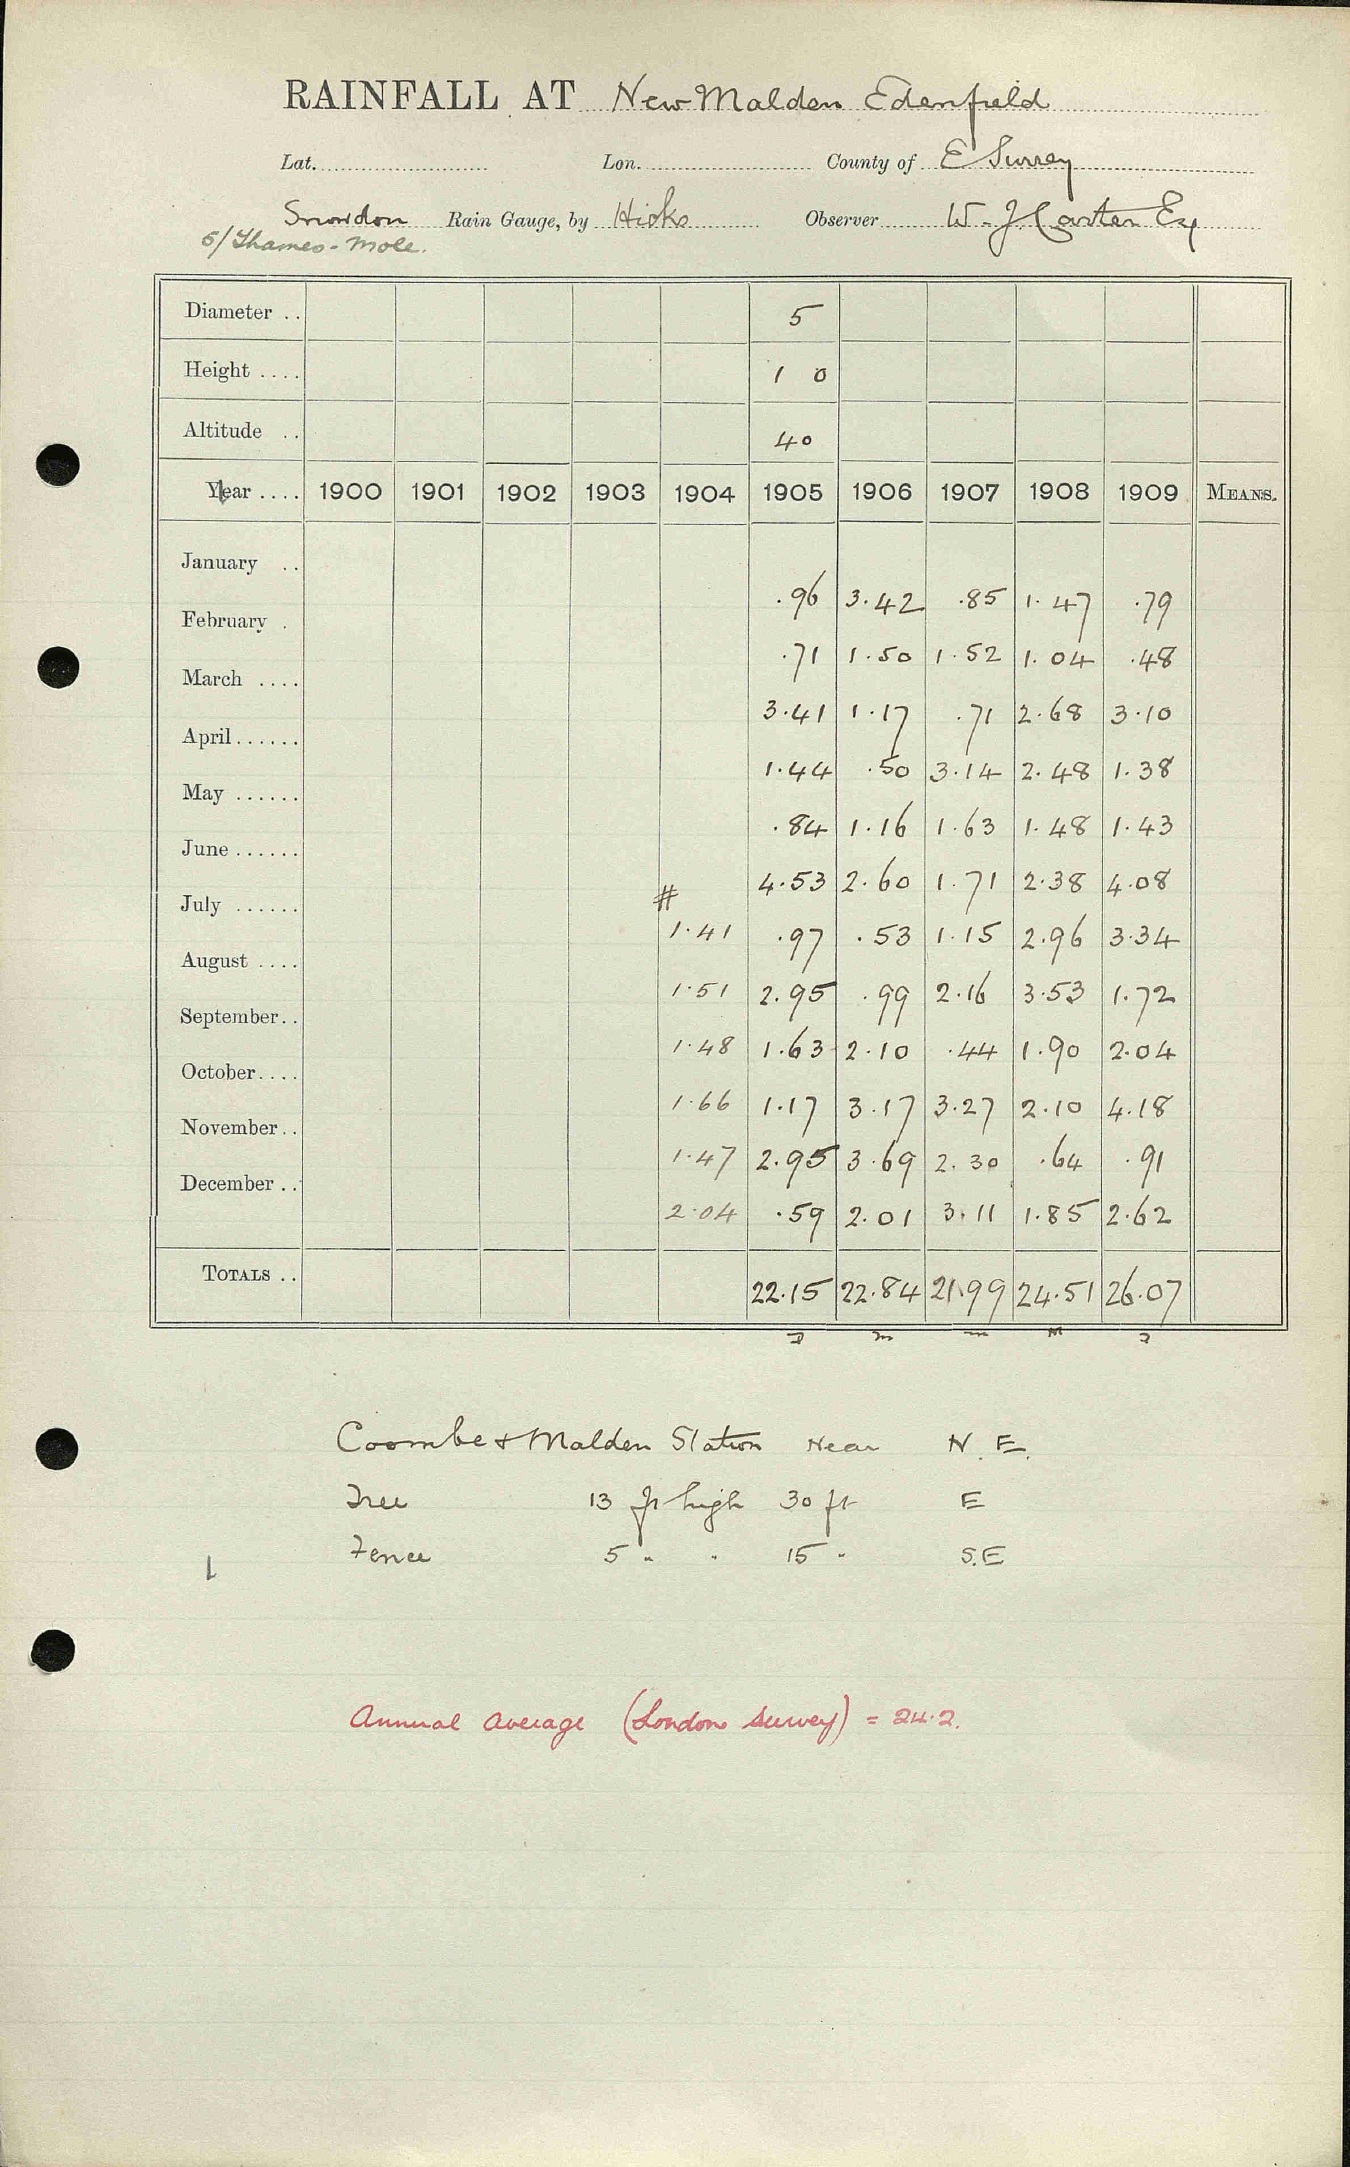 RAINFALL AT New Malden Edenfield
Lat. Lon. County of E Surrey
Snowdon Rain Gauge, by Hicks Observer W. J. Carter Esq
5/Thames-Mole.
Diameter .. 5
Height .... 1 0
Altitude .. 40
Year .... 1900 1901 1902 1903 1904 1905 1906 1907 1908 1909 MEANS.
January .. .96 3.42 .85 1.47 .79
February . .71 1.50 1.52 1.04 .48
March .... 3.41 1.17 .71 2.68 3.10
April ...... 1.44 .50 3.14 2.48 1.38
May ...... .84 1.16 1.63 1.48 1.43
June ...... 4.53 2.60 1.71 2.38 4.08
#
July ...... 1.41 .97 .53 1.15 2.96 3.34
August .... 1.51 2.95 .99 2.16 3.53 1.72
September .. 1.48 1.63 2.10 .44 1.90 2.04
October .... 1.66 1.17 3.17 3.27 2.10 4.18
November .. 1.47 2.95 3.69 2.30 .64 .91
December .. 2.04 .59 2.01 3.11 1.85 2.62
TOTALS .. 22.15 22.84 21.99 24.51 26.07
Coombe & Malden Station Near N.E.
Tree 13 ft high 30 ft E
Fence 5 " " 15 " S.E
Annual average (London Survey) = 24.2.